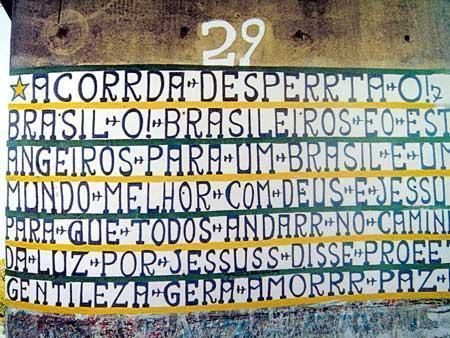 29
ACORRDA DESPERRTA O!2
BRASIL O! BRASILEIROS EO EST
ANGEIROS PARA UM BRASIL E UM
MUNDO MELHOR COM DEUS E JESSU
PARA QUE TODOS ANDARR NO CAMIN
DA LUZ POR JESSUSS DISSE PROEET
GENTILEZA GERA AMORRR PAZ